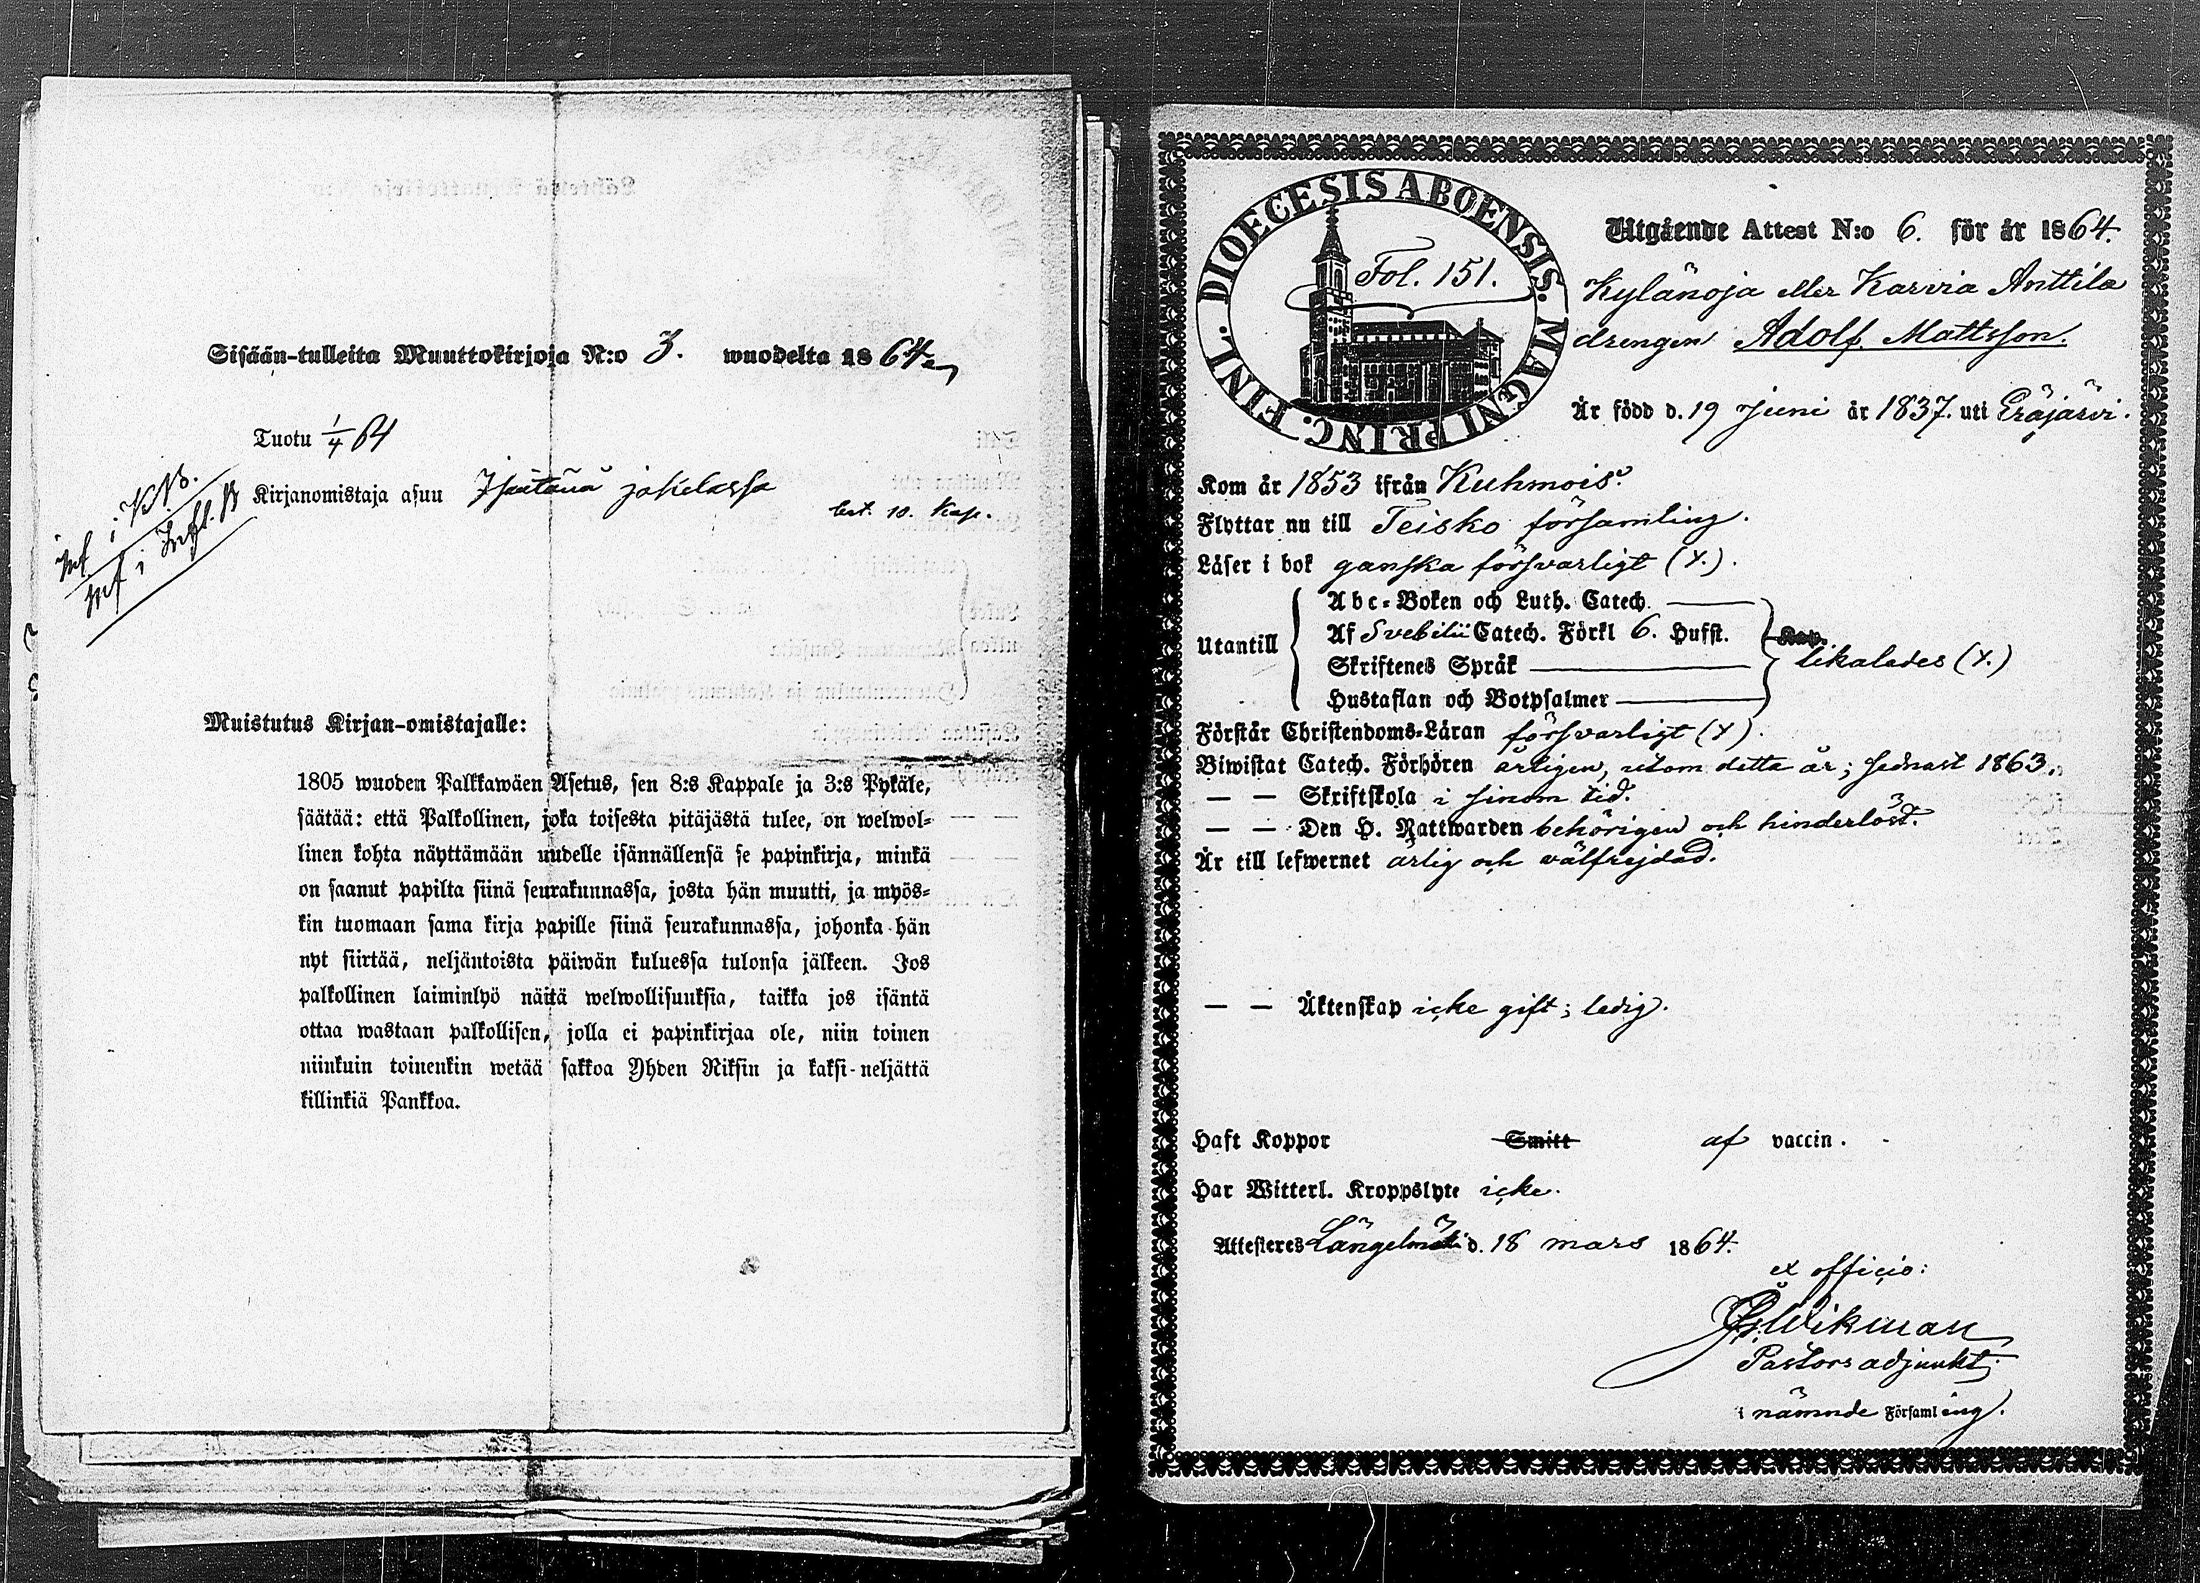 Sisään-tulleita Muuttokirjoja N:o 3. wuodelta 1864
Tuotu 1/4 64
Kirjanomistaja asuu jakelassa
bet. 10. Kop.
inf. i KB.
inf i Infl. B
Muistutus Kirjan-omistajalle:
1805 wuoden Palkkawäen Asetus, sen 8:s Kappale ja 3:s Pykäle,
säätää: että Palkollinen, joka toisesta pitäjästä tulee, on welwol-
linen kohta näyttämään uudelle isännällensä se papinkirja, minkä
on saanut papilta siinä seurakunnassa, josta hän muutti, ja myös-
kin tuomaan sama kirja papille siinä seurakunnassa, johonka hän
nyt siirtää, neljäntoista päiwän kuluessa tulonsa jälkeen. Jos
palkollinen laiminlyö näitä welwollisuuksia, taikka jos isäntä
ottaa wastaan palkollisen, jolla ei papinkirjaa ole, niin toinen
niinkuin toinenkin wetää sakkoa Yhden Riksin ja kaksi-neljättä
killinkiä Pankkoa.
DIOECESIS ABOENSIS. MAGNI PRINC. FINL.
Fol. 151.
Utgående Attest N:o 6. för år 1864.
Kylänoja eller Karvia Anttila
drengen Adolf Mattsson.
Är född d. 19 Juni år 1837. uti Eräjärvi.
Kom år 1853 ifrån Kuhmois.
Flyttar nu till Teisko församling.
Läser i bok ganska försvarligt (X.).
Utantill
Abc-Boken och Luth. Catech.
Af Svebilii Catech. Förkl 6. Hufst.
Skriftenes Språk
Hustaflan och Botpsalmer
Kap.
likaledes (X.)
Förstår Christendoms-Läran försvarligt (X).
Biwistat Catech. Förhören årligen, utom detta år; sednast 1863.
— — Skriftskola i sinom tid.
— — Den H. Nattwarden behörigen och hinderlöst.
Är till lefwernet ärlig och välfrejdad.
— — Äktenskap icke gift; ledig.
Haft Koppor Smitt af vaccin.
Har Witterl. Kroppslyte icke.
Attesteres Längelmäki d. 18 mars 1864.
ex officio:
Wikman
Pastors adjunkt
i nämnde Församling.